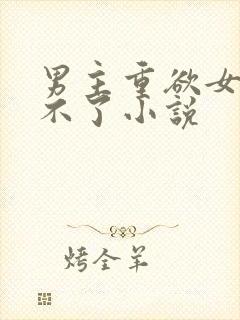 男主重欲女
不了小説
烤全羊